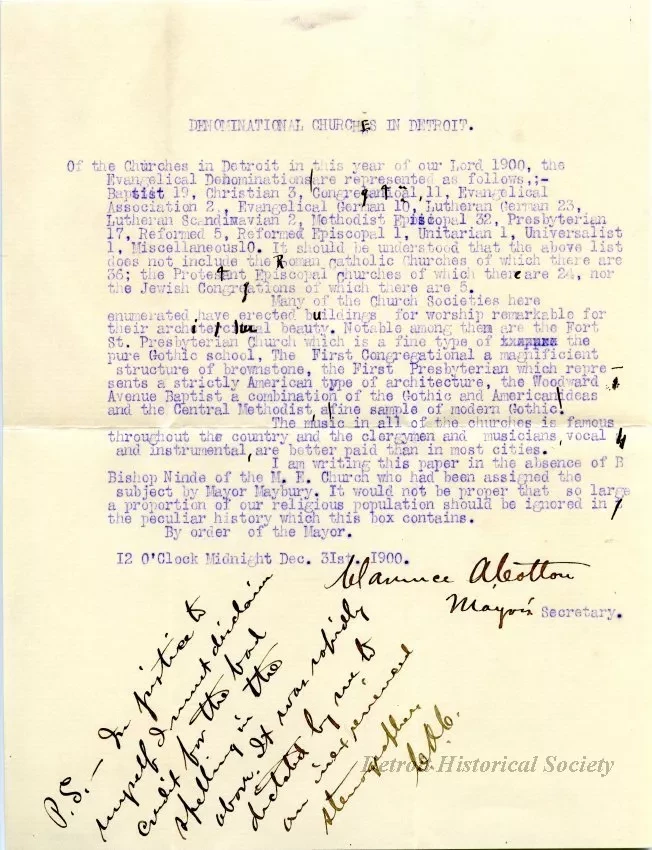 DENOMINATIONAL CHURCHES IN DETROIT.
Of the Churches in Detroit in this year of our Lord 1900, the
Evangelical Denominations are represented as follows,;-
Baptist 19, Christian 3, Congregational 11, Evangelical
Association 2,, Evangelical German 10, Lutheran German 23,
Lutheral Scandinavian 2, Methodist Episcopal 32, Presbyterian
17, Reformed 5, Reformed Episcopal 1, Unitarian 1, Universalist
1, Miscellaneous10. It should be understood that the above list
does not include the Roman catholic Churches of which there are
36; the Protestant Episcopal churches of which there are 24, nor
the Jewish Congregations of which there are 5.
Many of the Church Societies here
enumerated have erected buildings for worship remarkable for
their architectural beauty. Notable among them are the Fort
St. Presbyterian Church which is a fine type of xxxxxxx the
pure Gothic school, The First Congregational a magnificient
structure of brownstone, the First Presbyterian which repre-
sents a strictly American type of architecture, the Woodward
Avenue Baptist a combination of the Gothic and American ideas
and the Central Methodist, a fine sample of modern Gothic.
The music in all of the churches is famous
throughout the country and the clergymen and musicians, vocal
and instrumental, are better paid than in most cities.
I am writing this paper in the absence of B
Bishop Ninde of the M. E. Church who had been assigned the
subject by Mayor Maybury. It would not be proper that so large
a proportion of our religious population should be ignored in
the peculiar history which this box contains.
By order of the Mayor.
12 O'Clock Midnight Dec. 31st. 1900.
Clarence A Cotton
Mayor's Secretary.
P.S. - In justice to
myself I must disclaim
credit for the bad
spelling in the
above. It was rapidly
dictated by me to
an inexperienced
stenographer
C.A.C.
Detroit Historical Society